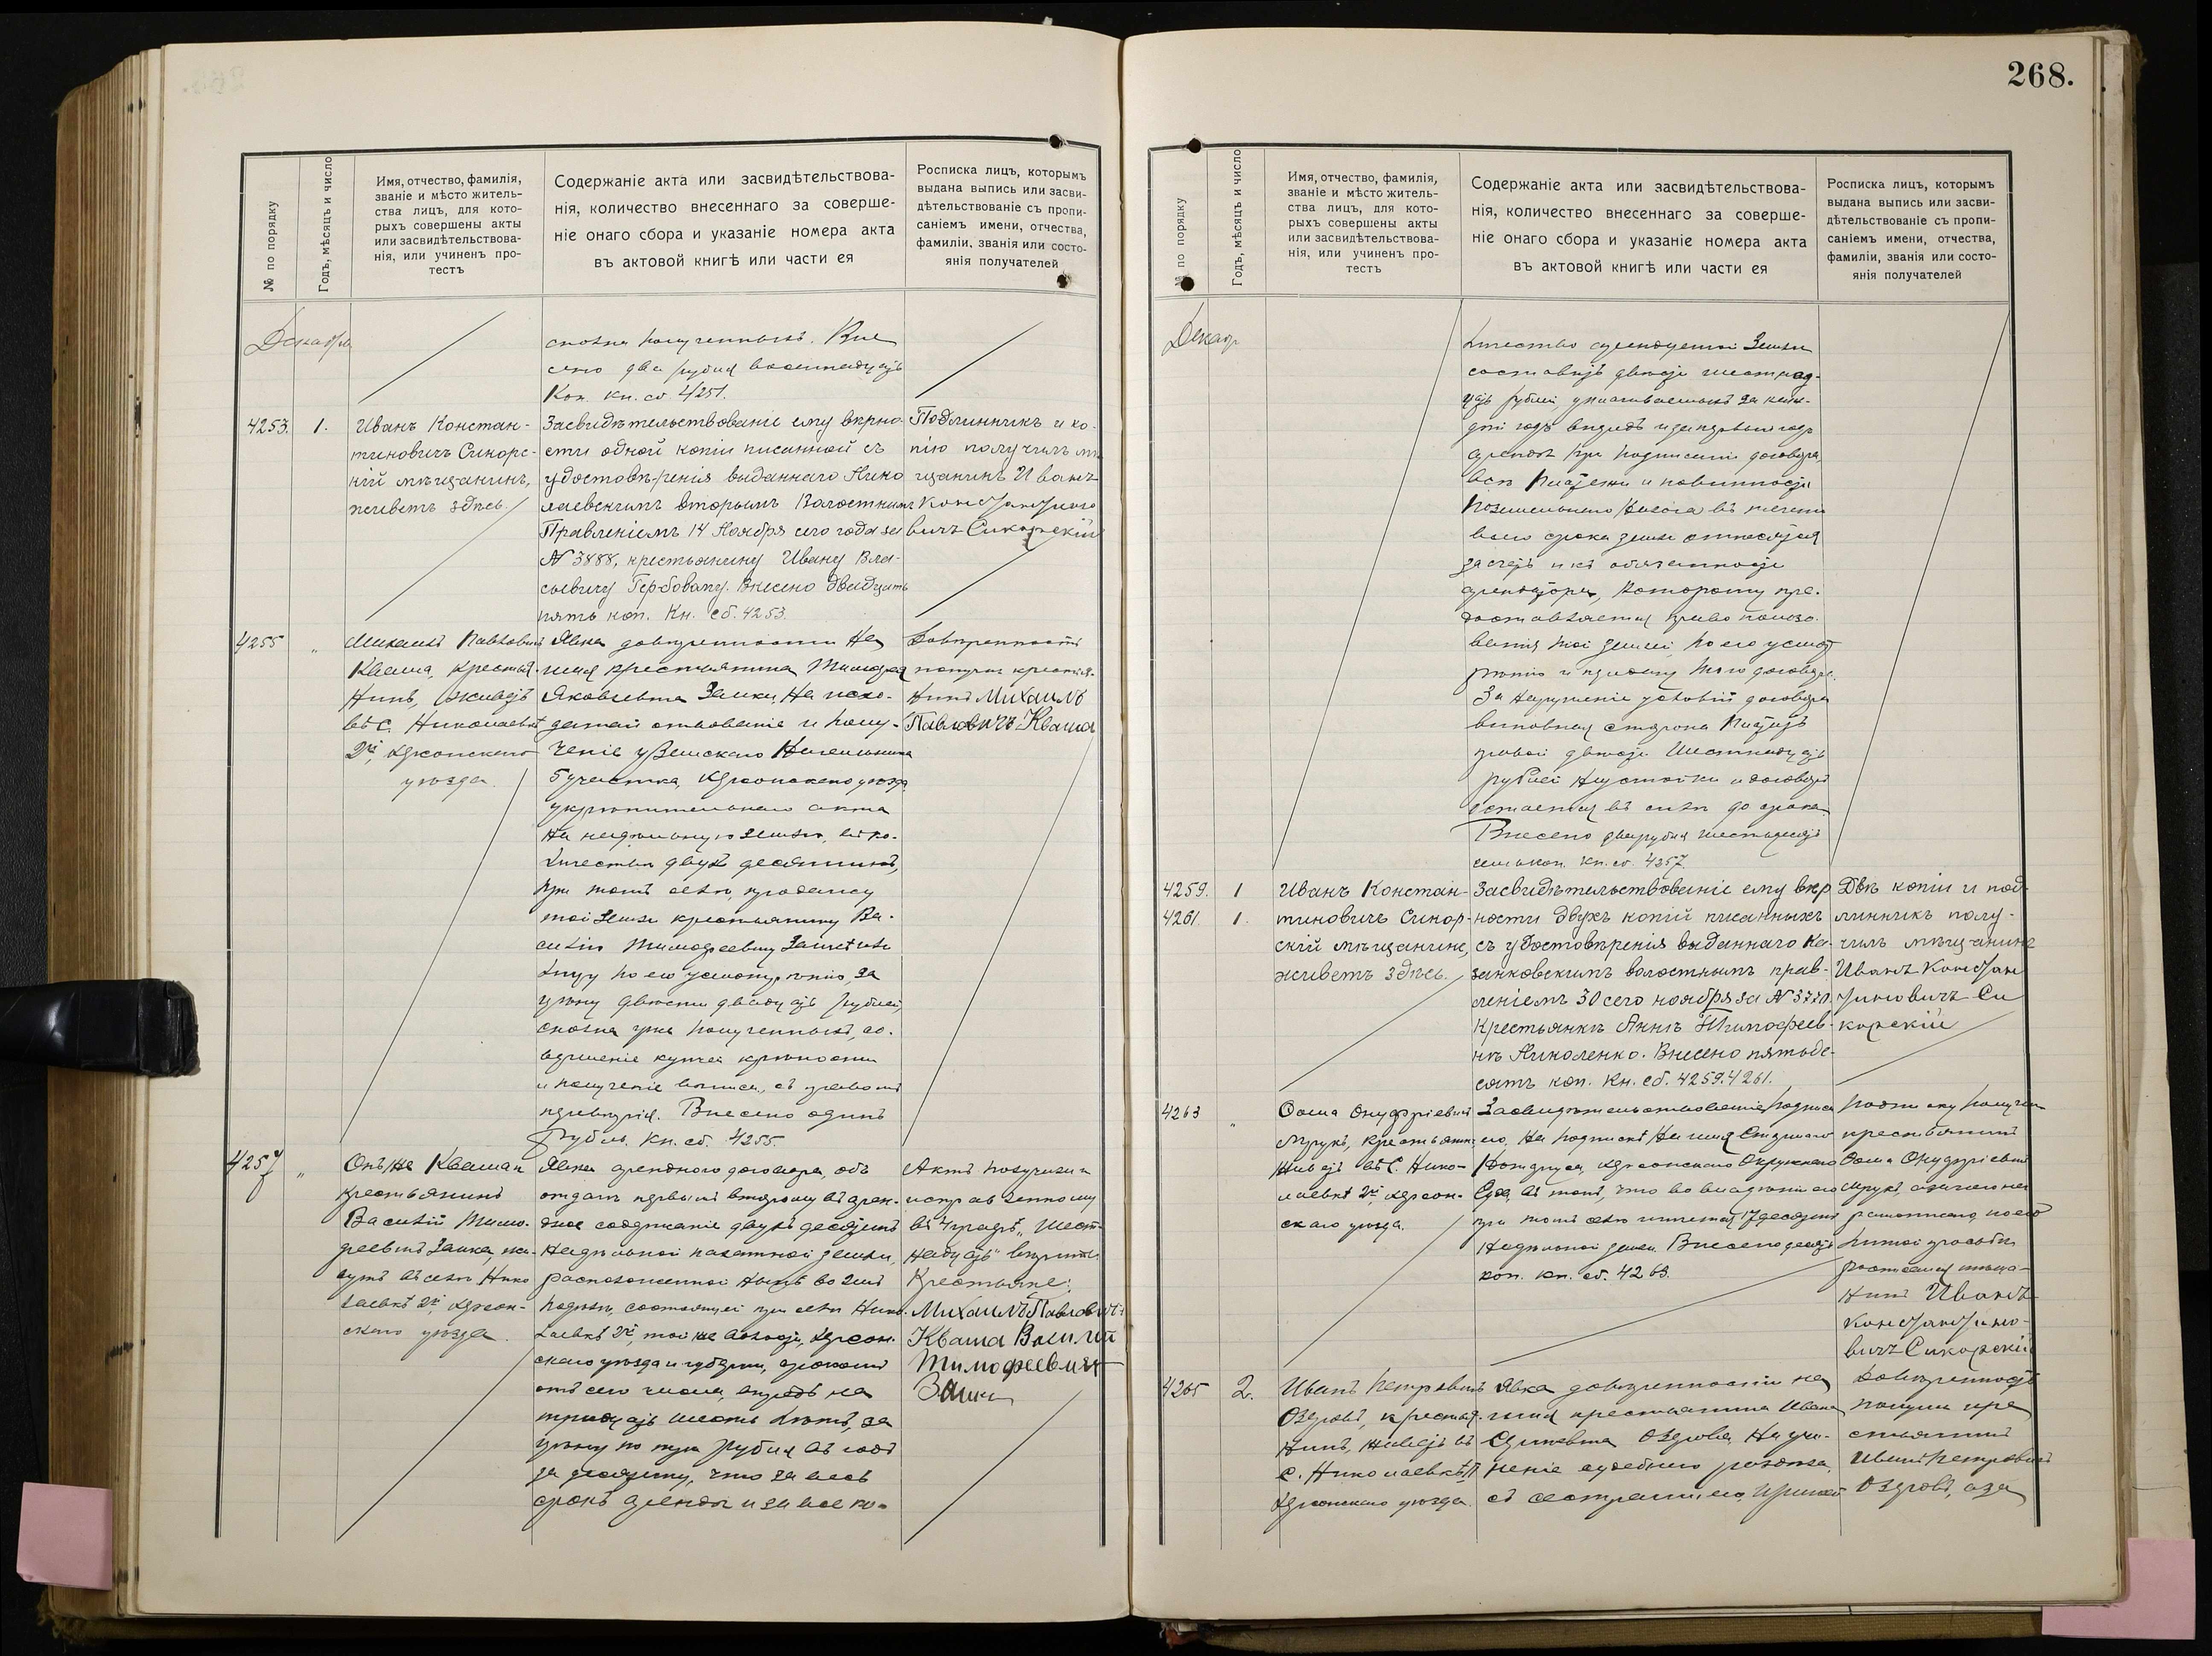 268.
№ по порядку
Годъ, мѣсяцъ и число
Имя, отчество, фамилія,
званіе и мѣсто житель-
ства лицъ, для кото-
рыхъ совершены акты
или засвидѣтельствова-
нія, или учиненъ про-
тестъ
Содержаніе акта или засвидѣтельствова-
нія, количество внесеннаго за соверше-
ніе онаго сбора и указаніе номера акта
въ актовой книгѣ или части ея
Росписка лицъ, которымъ
выдана выпись или засви-
дѣтельствованіе съ пропи-
саніемъ имени, отчества,
фамиліи, званія или состо-
янія получателей
Декабрь
сполна полученныхъ. Вне
сено два рубля восемнадцать
Коп. Кн. сб. 4251.
4253. 1.
Иванъ Констан-
тиновичъ Сикорс-
кій мѣщанинъ,
живетъ здѣсь.
Засвидѣтельствованіе ему вѣрно-
сти одной копіи писанной съ
удостовѣренія выданнаго Нико
лаевскимъ вторымъ Волостнымъ
Правленіемъ 14 Ноября сего года за
№ 3888, крестьянину Ивану Вла-
сьевичу Гербовану. Внесено двадцать
пять коп. Кн. сб. 4253.
Подлинникъ и ко-
пію получилъ мѣ
щанинъ Иванъ
Константино
вичъ Сикорскій
4255 "
Михаилъ Павловичъ
Кваша, крестья-
нинъ, живетъ
въ с. Николаевкѣ
2й, Херсонскаго
уѣзда.
Явка довѣренности на
имя крестьянина Тимофея
Яковлевича Заики, на исхо-
датайствованіе и полу-
ченіе у Земскаго Начальника
5 участка, Херсонскаго уѣзда
укрѣпительнаго акта
на надѣльную землю, въ ко-
личествѣ двухъ десятинъ,
при томъ селѣ, продажу
той земли крестьянину Ва-
силію Тимофеевичу Заикѣ или
лицу по его усмотрѣнію, за
цѣну двѣсти двадцать рублей,
сполна уже полученныхъ, со-
вершеніе купчей крѣпости
и полученіе выписи, съ правомъ
передовѣрія. Внесено одинъ
рубль. Кн. сб. 4255.
Довѣренность
получилъ крестья-
нинъ Михаилъ
Павловичъ Кваша
4257 "
Онъ же Кваша и
крестьянинъ
Василій Тимо-
феевичъ Заика, жи-
вутъ въ селѣ Нико
лаевкѣ 2й Херсон-
скаго уѣзда.
Явка арендного договора, объ
отдачѣ первымъ второму въ арен-
дное содержаніе двухъ десятинъ
надѣльной пахатной земли,
расположенной
состоящей при селѣ Нико-
лаевкѣ 2й, той же волости, Херсон-
скаго уѣзда и губерніи, срокомъ
отъ сего числа, впредь на
тридцать шесть лѣтъ, за
цѣну по три рубля въ годъ
за десятину, что за весь
срокъ аренды и за все ко-
Актъ получили
въ "Шест-
надцать"
Крестьяне:
Михаилъ Павловичъ
Кваша Василій
Тимофеевичъ
Заика
№ по порядку
Годъ, мѣсяцъ и число
Имя, отчество, фамилія,
званіе и мѣсто житель-
ства лицъ, для кото-
рыхъ совершены акты
или засвидѣтельствова-
нія, или учиненъ про-
тестъ
Содержаніе акта или засвидѣтельствова-
нія, количество внесеннаго за соверше-
ніе онаго сбора и указаніе номера акта
въ актовой книгѣ или части ея
Росписка лицъ, которымъ
выдана выпись или засви-
дѣтельствованіе съ пропи-
саніемъ имени, отчества,
фамиліи, званія или состо-
янія получателей
Декабр
личество арендуемой Земли
составитъ двѣсти шестнад-
цать рублей, уплачиваемыхъ за каж-
дый годъ впередъ
аренды при подписаніи договора,
всѣ платежи и повинности
поземельнаго налога въ теченіе
всего срока земли относятся
за счетъ и къ обязанности
арендатора, которому пре-
доставляется право пользо-
ванія той землей, по его усмот
рѣнію и передачи того договора.
За нарушеніе условій договора
виновная сторона платитъ
правой двѣсти Шестнадцать
рублей неустойки и договоръ
остается въ силѣ до срока.
Внесено два рубля шестьдесятъ
семь коп. Кн. сб. 4257
4259. 1
4261. 1.
Иванъ Констан-
тиновичъ Сикор-
скій мѣщанинъ,
живетъ здѣсь.
Засвидѣтельствованіе ему вѣр
ности двухъ копій писанныхъ
съ удостовѣренія выданнаго Ка-
занковскимъ волостнымъ прав-
леніемъ 30 сего ноября за № 3770.
Крестьянкѣ Аннѣ Тимофеев-
нѣ Николенко. Внесено пятьде-
сятъ коп. Кн. сб. 4259.4261.
Двѣ копіи и под-
линникъ полу-
чилъ мѣщанинъ
Иванъ Констан
тиновичъ Си
корскій
4263 "
Ѳома Онуфріевичъ
крестьянинъ
живетъ въ с. Нико-
лаевкѣ 2й Херсон-
скаго уѣзда.
Засвидѣтельствованіе подписи
его, на подпискѣ на имя Старшаго
Нотаріуса, Херсонскаго Окружнаго
Суда, въ томъ, что во владѣніи его
при томъ селѣ имѣется 17 десятинъ
надѣльной земли. Внесено десять
коп. Кн. сб. 4263.
Подписку получилъ
крестьянинъ
Ѳома Онуфріевичъ
личной просьбѣ
росписался мѣща-
нинъ Иванъ
Константино-
вичъ Сикорскій
4265 2.
Иванъ Петровичъ
Озеровъ, крестья-
нинъ, живетъ въ
с. Николаевкѣ II
Херсонскаго уѣзда.
Явка довѣренности на
имя крестьянина Ивана
Озерова, на учи-
неніе судебнаго раздѣла,
съ сестрами его,
Довѣренность
получилъ кре
стьянинъ
Иванъ Петровичъ
Озеровъ, а за